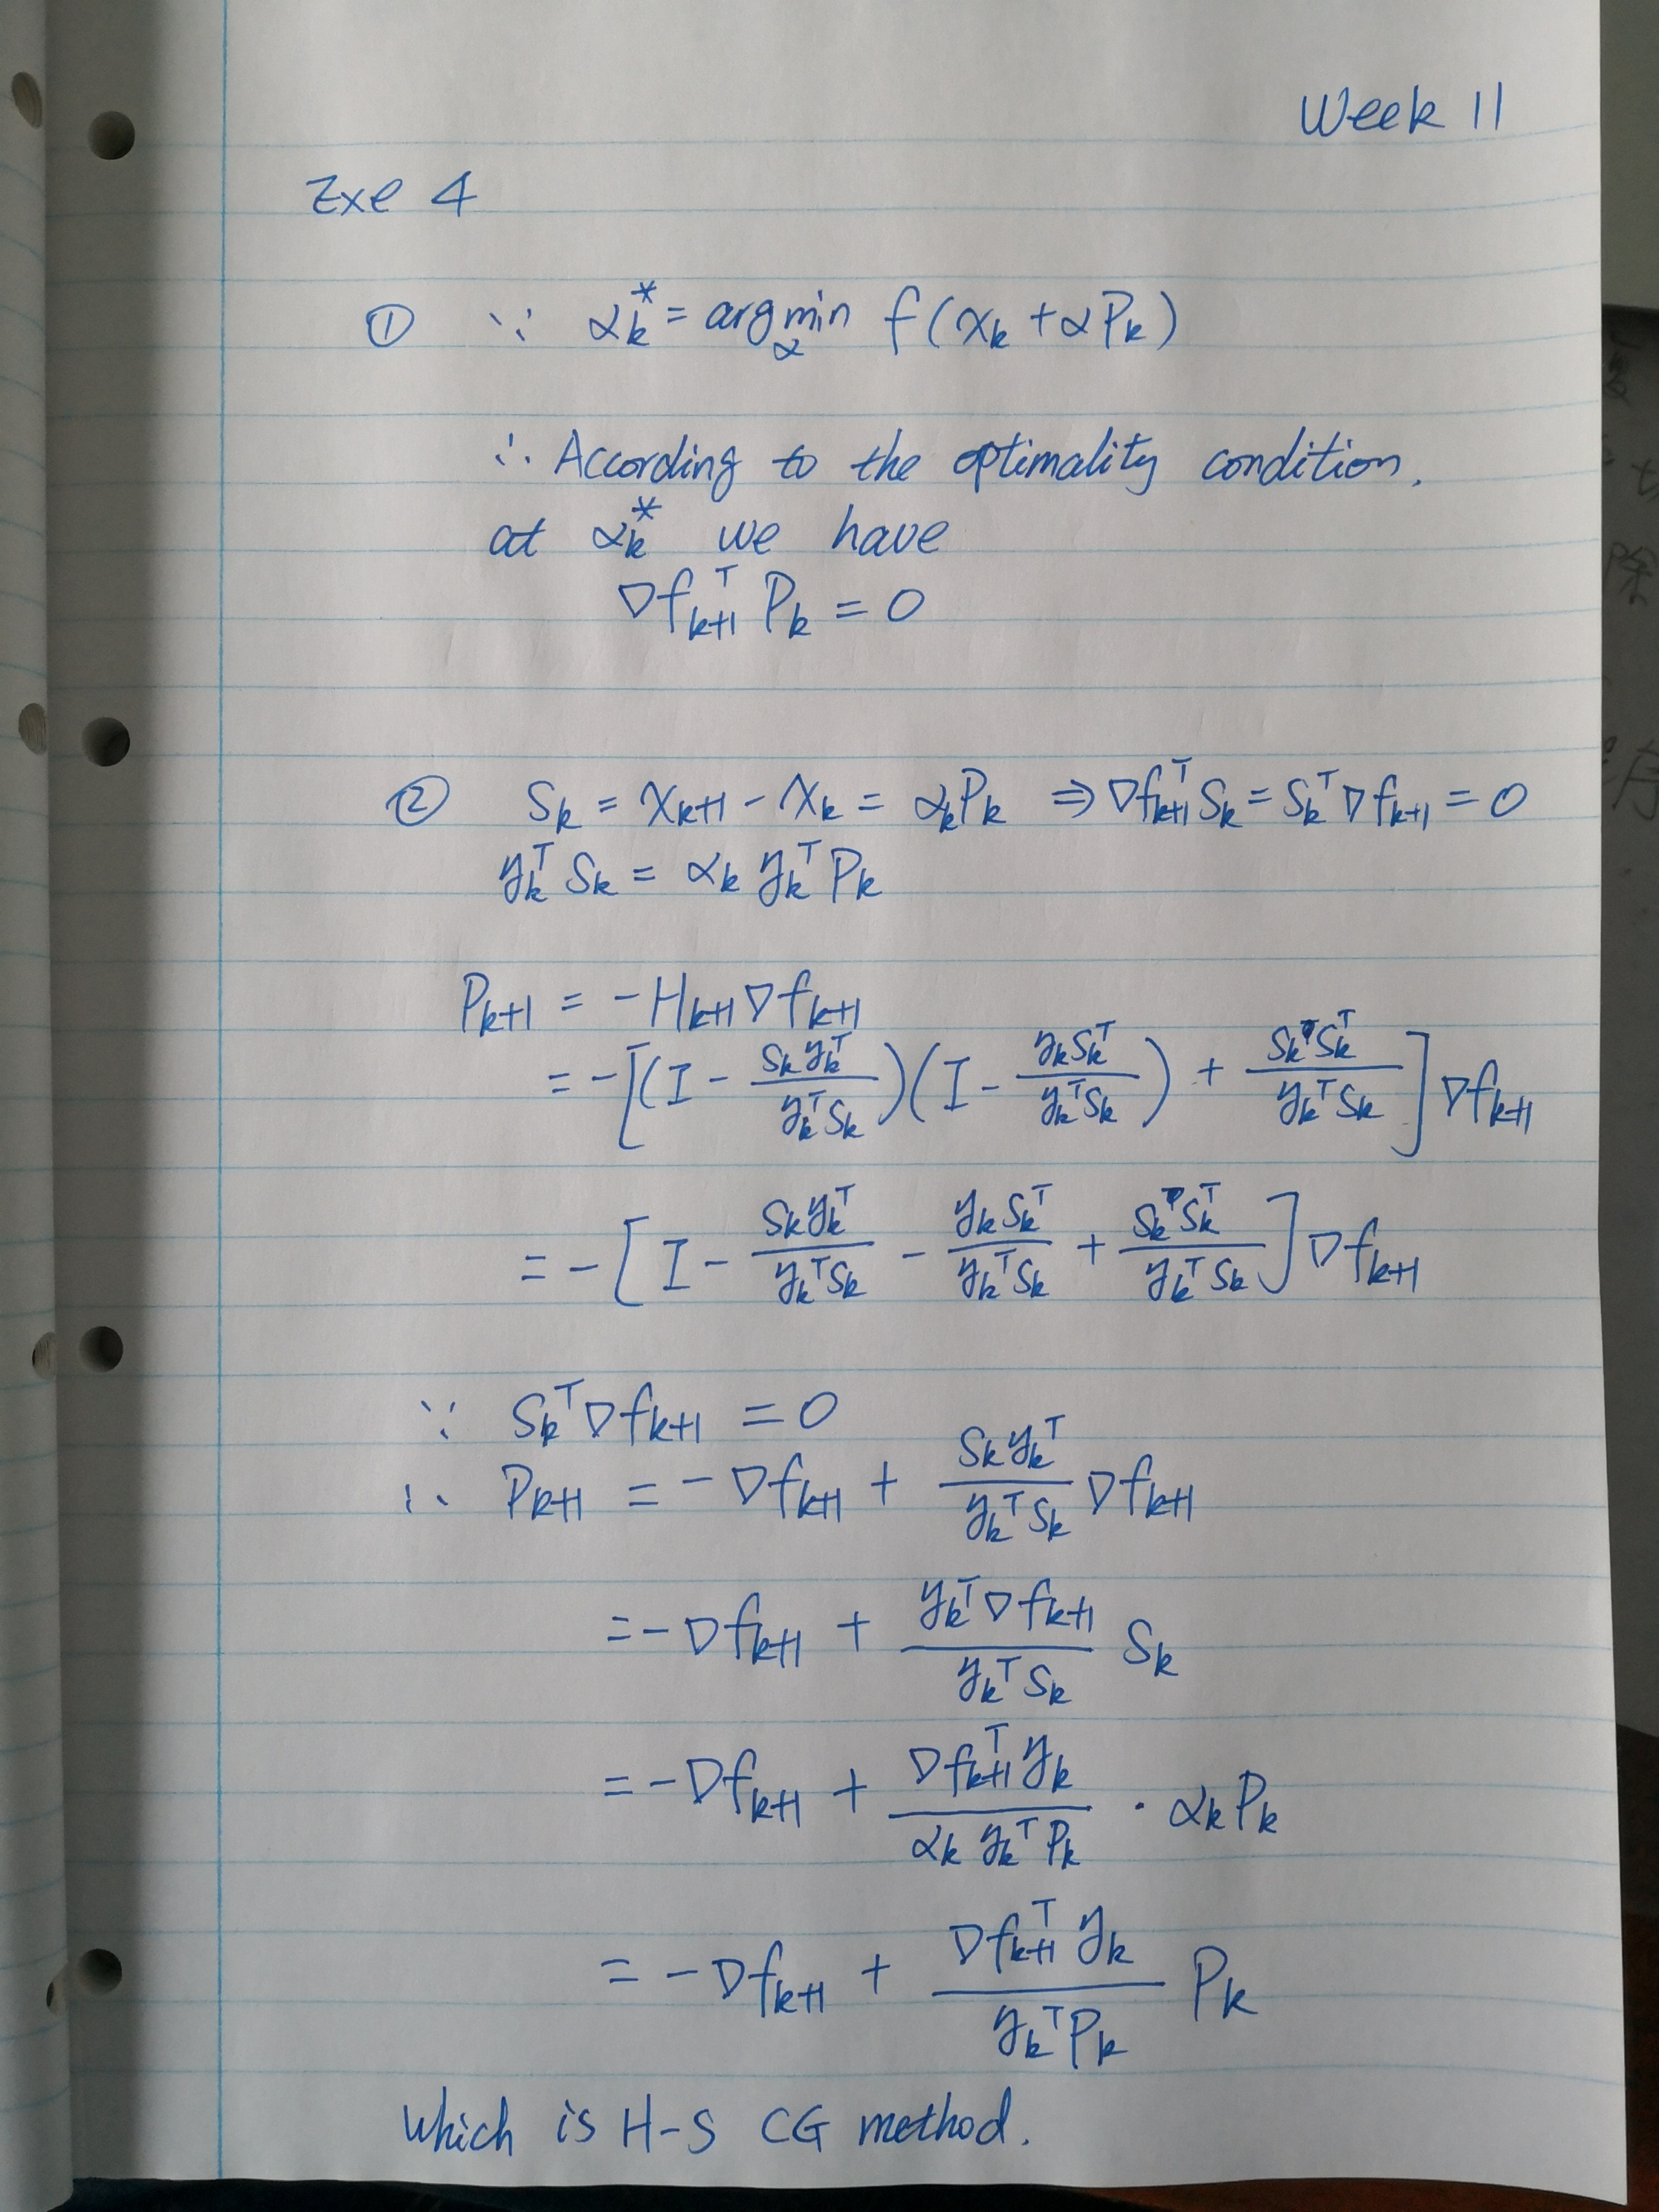 Week 11
Exe 4
① ∵ αₖ* = argmin_α f(xₖ + αPₖ)
∴ According to the optimality condition.
at αₖ* we have
∇fₖ₊₁ᵀ Pₖ = 0
② Sₖ = Xₖ₊₁ - Xₖ = αₖPₖ ⇒ ∇fₖ₊₁ᵀ Sₖ = Sₖᵀ ∇fₖ₊₁ = 0
yₖᵀ Sₖ = αₖ yₖᵀ Pₖ
Pₖ₊₁ = -Hₖ₊₁ ∇fₖ₊₁
= -[(I - Sₖyₖᵀ / yₖᵀSₖ)(I - yₖSₖᵀ / yₖᵀSₖ) + SₖSₖᵀ / yₖᵀSₖ] ∇fₖ₊₁
= -[I - Sₖyₖᵀ / yₖᵀSₖ - yₖSₖᵀ / yₖᵀSₖ + SₖSₖᵀ / yₖᵀSₖ] ∇fₖ₊₁
∵ Sₖᵀ∇fₖ₊₁ = 0
∴ Pₖ₊₁ = -∇fₖ₊₁ + Sₖyₖᵀ / yₖᵀSₖ ∇fₖ₊₁
= -∇fₖ₊₁ + yₖᵀ∇fₖ₊₁ / yₖᵀSₖ Sₖ
= -∇fₖ₊₁ + ∇fₖ₊₁ᵀyₖ / αₖ yₖᵀPₖ · αₖPₖ
= -∇fₖ₊₁ + ∇fₖ₊₁ᵀ yₖ / yₖᵀPₖ Pₖ
Which is H-S CG method.
除